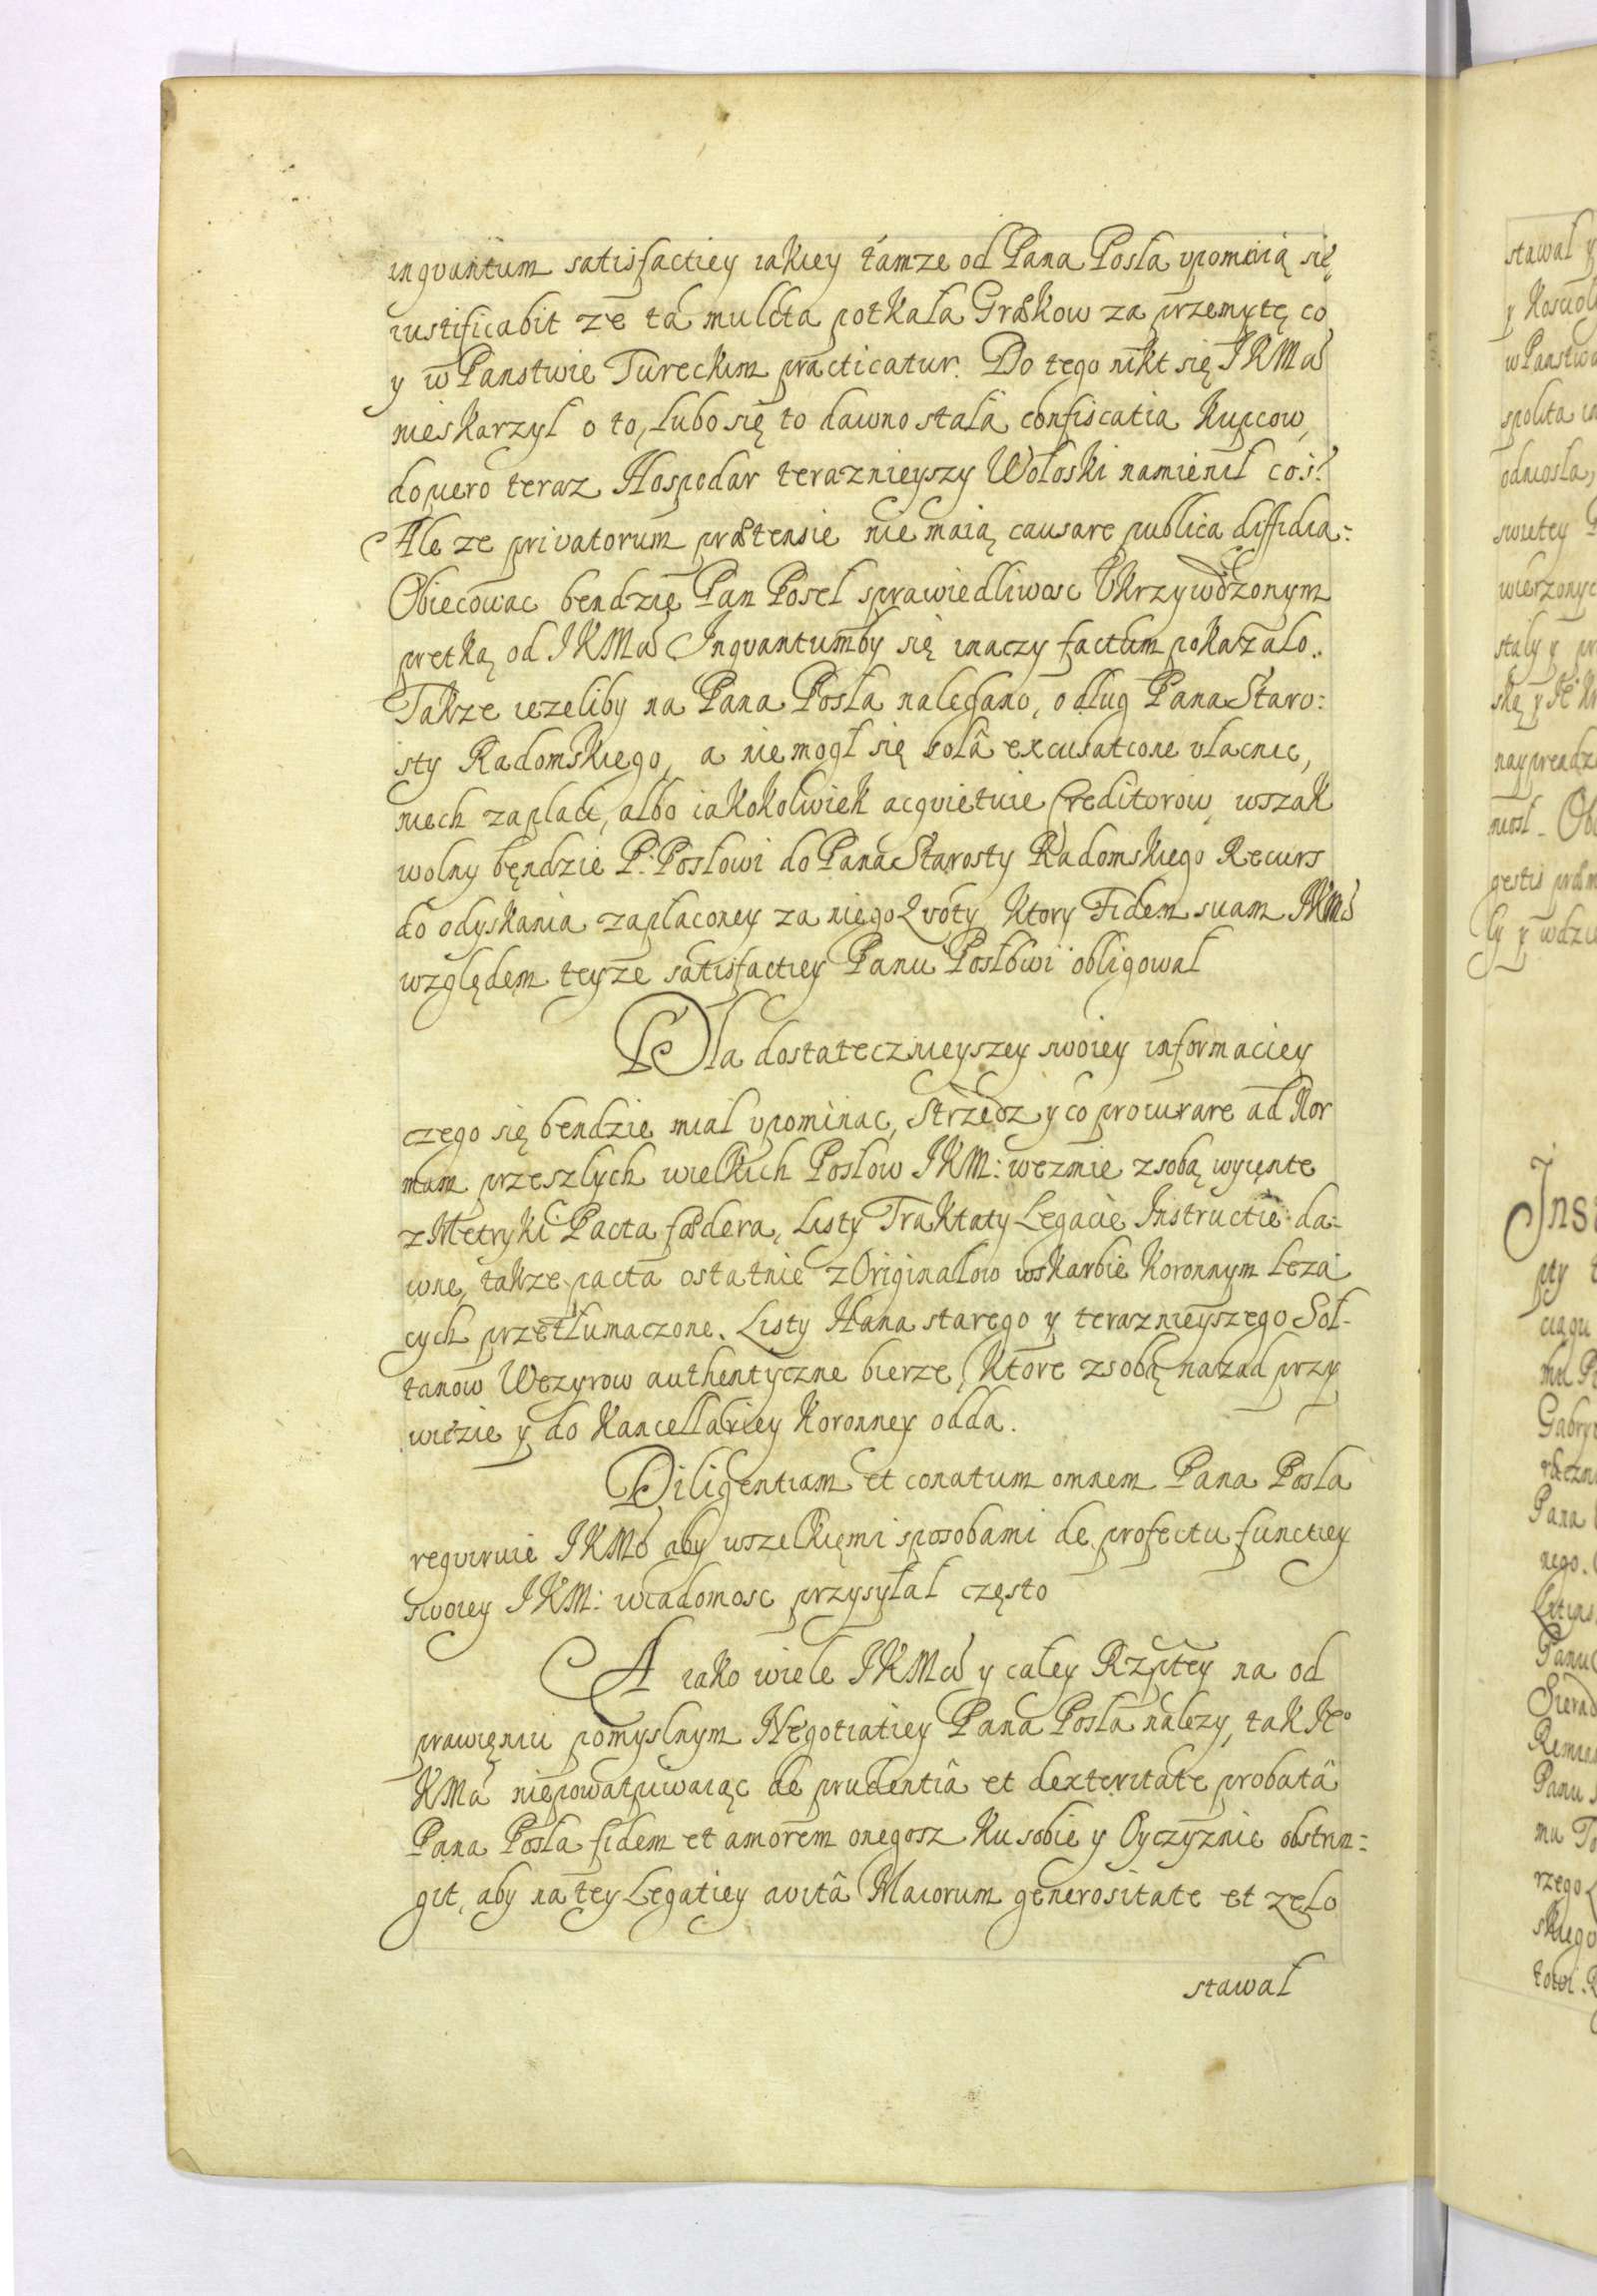 inqvantum satisfactiey iakiey tamze od Pana Posla upominią się
iustificabit ze ta mulcta potkala Græków za przemytę co
y w Panstwie Tureckim practicatur. Do tego nikt się JKMci
nieskarzyl o to, lubo się to dawno stala confiscatia kupcow,
dopiero teraz Hospodar teraznieyszy Wołoski namienil coś.
Ale ze privatorum prætensie nie maią causare publica diffidia:
Obiecowac bendzie Pan Posel sprawiedliwosc Ukrzywdzonym
prętką od JKMci Inqvantumby się inaczy factum pokazalo.
Takze iezeliby na Pana Posla nalegano, o dlug Pana Staro:
sty Radomskiego, a niemogl się solâ excusatione vlacnic,
niech zaplaci, albo iakokolwiek acqvietuie Creditorow, wszak
wolny bęndzie P. Poslowi do Pana Starosty Radomskiego Recurs
do odyskania zaplaconey za niego Qvoty, ktory Fidem suam JKMci
względem teyze satisfactiey Panu Poslowi obligowal
Dla dostateczneyszey swoiey informaciey
czego się bendzie mial upominac, Strzedz y co procurare ad Nor
mam przeszlych wielkich Poslow JKM: wezmie zsobą wyięnte
z Metryki Pacta fædera, Listy Traktaty Legacie Instructie da-
wne, takze pacta ostatnie z Originalow wskarbie Koronnym Leza
cych przetlumaczone. Listy Hana starego y teraznieyszego Sol-
tanow Wezyrow authentyczne bierze, Ktore zsobą nazad przy
wiezie y do Kancellariey Koronney odda.
Diligentiam et conatum omnem Pana Posla
reqviruie JKMć aby wszelkięmi sposobami de profectu functiey
swoiey JKM: wiadomosc przysylal często
A iako wiele JKMci y caley Rzptey na od
prawięniu pomyslnym Negotiatiey Pana Posla nalezy, tak Je°
KMć niepowatpiwaiąc de prudentiâ et dexteritate probatâ
Pana Posla fidem et amorem onegosz ku sobie y Oyczyznie obstrin:
git, aby na tey Legatiey avitâ Maiorum generositate et zelo
stawal